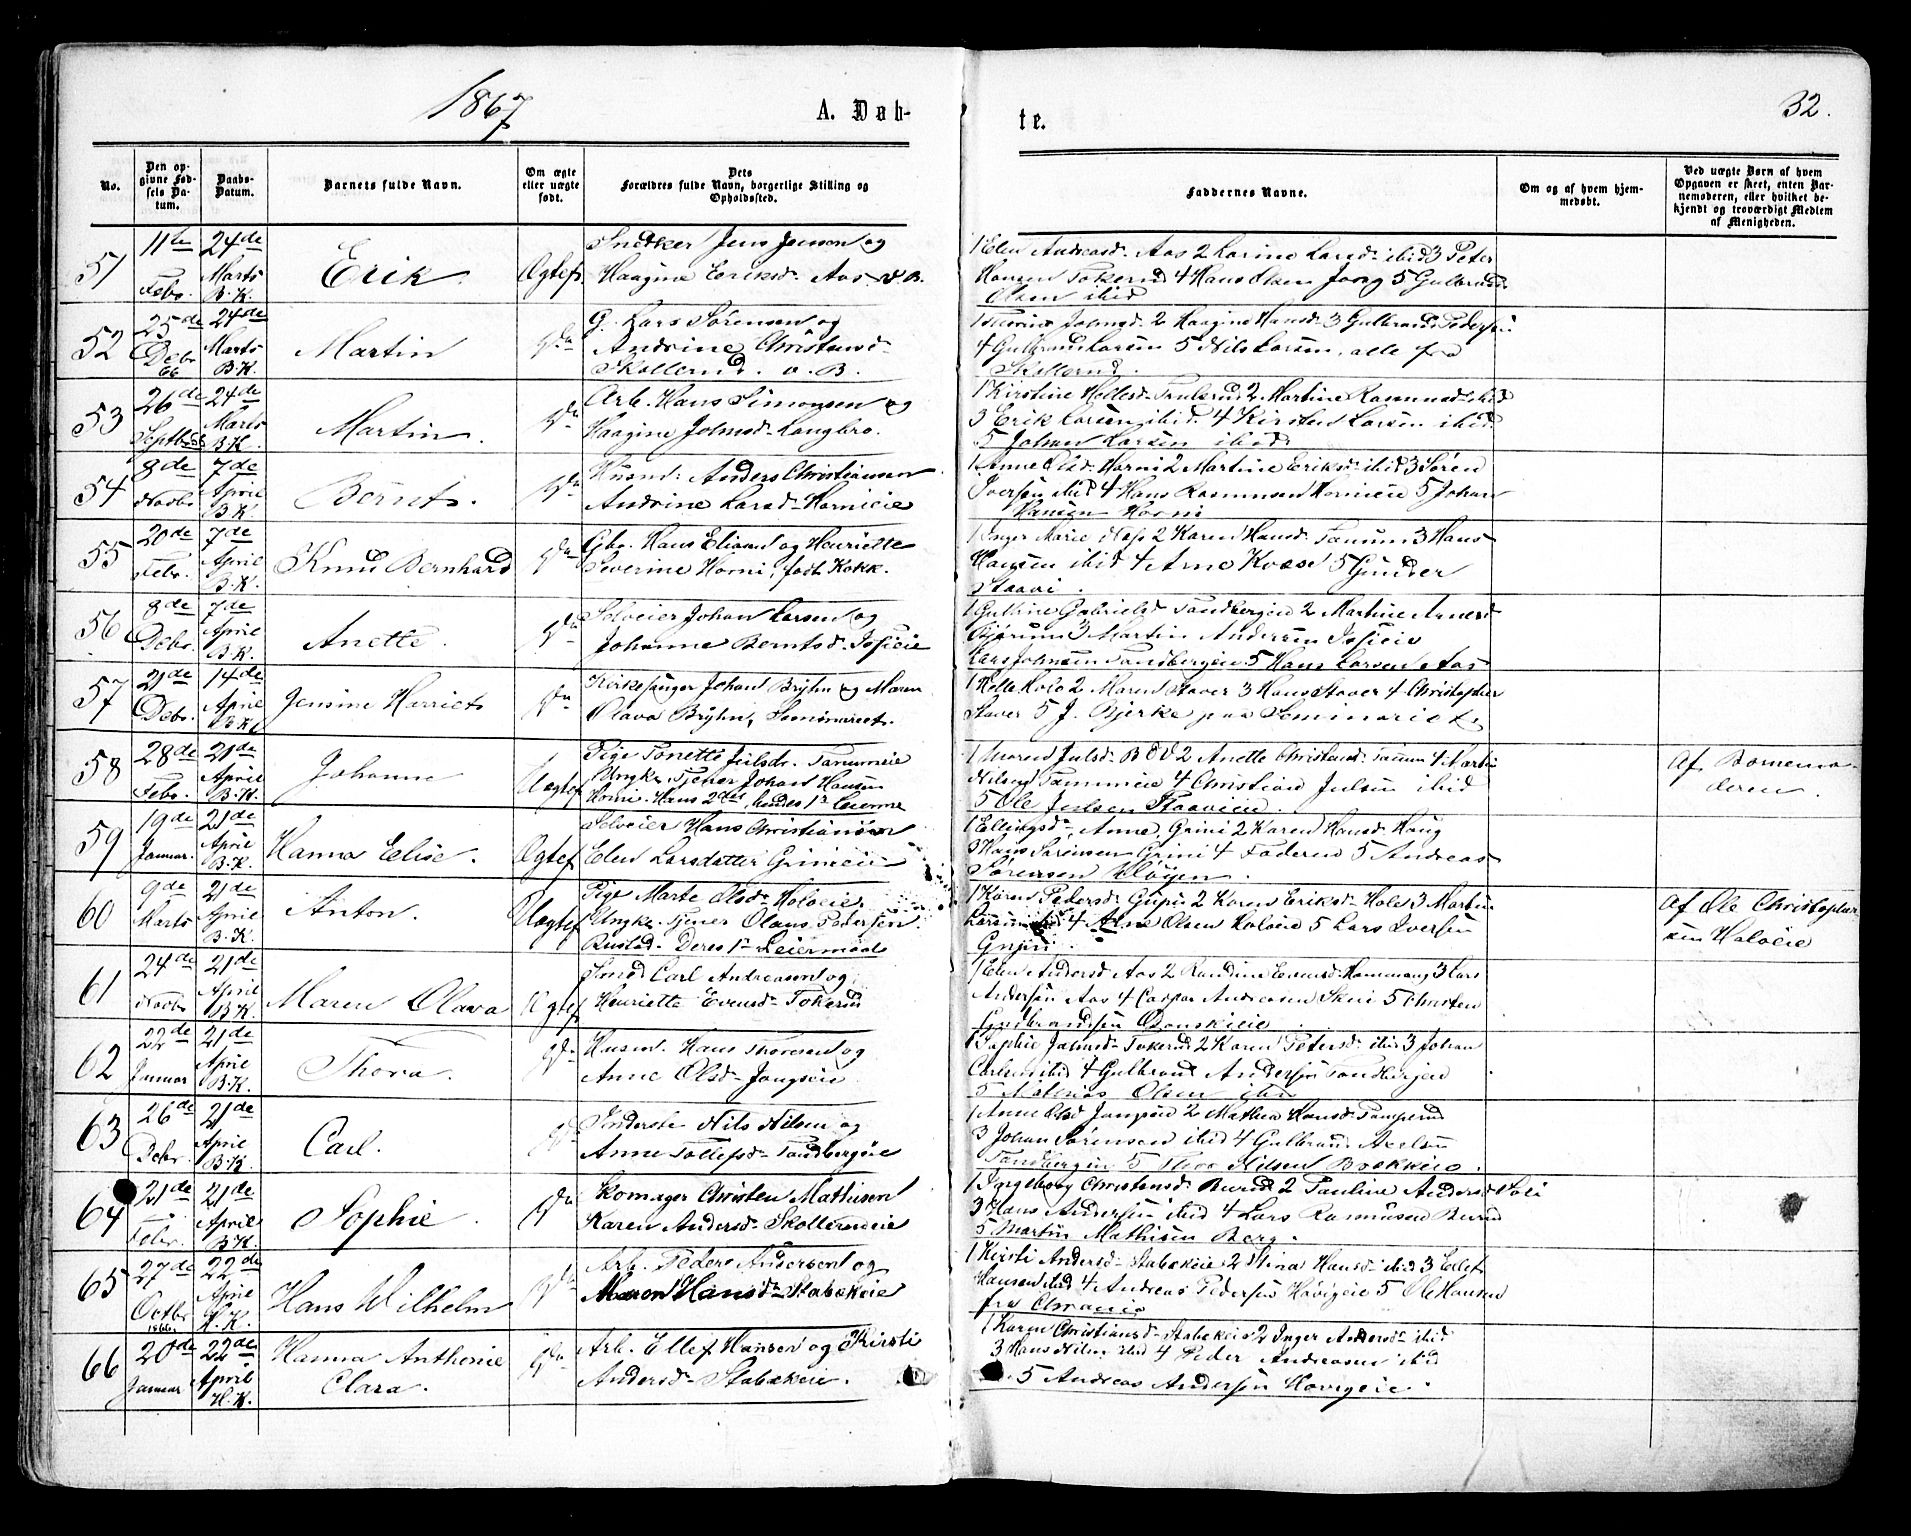 1867
A. Døb-
te.
32.
No.
Den op-
givne Fød-
sels Da-
tum.
Daabs-
Datum.
Barnets fulde Navn.
Om ægte
eller uægte
født.
Dets
Forældres fulde Navn, borgerlige Stilling og
Opholdssted.
Faddernes Navne.
Om og af hvem hjem-
medøbt.
Ved uægte Børn af hvem
Opgaven er skeet, enten Bar-
nemoderen, eller hvilket be-
kjendt og troværdigt Medlem
af Menigheden.
51
11te
Febr.
24de
Marts
B.K.
Erik.
Ægtef
Snedker Jens Jensen og
Haagine Eriksd. Aas. V.B.
1 Elen Andreasd. Aas 2 Karine Larsd. ibid 3 Peter
Hansen Tokerud 4 Hans Olsen Jong 5 Gulbrand
Olsen ibid
52
25de
Debr
66
24de
Marts
B.K.
Martin
Do
G. Lars Sørensen og
Andrine Christensd.
Skollerud. V.B.
Johnsd. 2 Haagine Hansd. 3 Gulbrand Pedersen
4 Gulbrand Larsen 5 Nils Larsen, alle fra
Skollerud.
53
26de
Septbr 66
24de
Marts
B.K.
Martin.
Do
Arb. Hans Simonsen og
Haagine Johnsd. Langbro.
1 Kirstine Hellesd. 2 Martine Rasmusd. ibid
3 Erik Larsen ibid. 4 Kirsten Larsen ibid
5 Johan Larsen ibid.
54
8de
Novbr
7de
April
B.K.
Bernt.
Do
Husmd. Anders Christiansen
Andrine Larsd. Hornieie
1 Anne Olsd. Horni 2 Martine Eriksd. ibid 3 Søren
Iversen ibid 4 Hans Rasmusen Hornieie 5 Johan
Hansen Horni
55
20de
Febr.
7de
April
B.K.
Knud Bernhard
Do
Gbr. Hans Eliasen og Henriette
Severine Horni, født Kokk.
1 Inger Marie 2 Karen Hansd. Tanum 3 Hans
Hansen ibid 4 Arne Kvæse 5 Gunder
Staavi.
56
8de
Debr.
7de
April
B.K.
Anette.
Do
Selveier Johan Larsen og
Johanne Berntsd.
1 Gabrielsd. Tandbergeie 2 Martine Arnesd
Bjørum 3 Martin Andersen
Lars Johnsen Tandbergeie 5 Hans Larsen Aas
57
21de
Debr.
14de
April
B.K.
Jensine Harriet
Do
Kirkesanger Johan Bryhn og Maren
Olava Bryhn, Seminariet.
1 Helle Holo 2 Maren Staver 3 Hans Staver 4 Christopher
Staver 5 J. Bjerke paa Seminariet
58
28de
Febr.
21de
April
B.K.
Johanne
Uægtef
Pige Tonette Julsdr. Tanumeie
Ungk. Tjener Johan Hansen
Horni. Hans 2det, hendes 1ste Leierm.
1 Maren Julsd. 2 Anette Christensd. Tanum
Tanumeie 4 Christian Julsen ibid
5 Ole Julsen Staavieie.
Af Barnemo-
deren.
59
19de
Januar.
21de
April
B.K.
Hanna Elise.
Ægtef
Selveier Hans Christiansen
Elen Larsdatter Grinieie
1 Ellingsd. Anne, Grini 2 Karen Hansd. Haug
3 Hans Sørensen Grini 4 Faderen 5 Andreas
Sørensen Sløyen.
60
9de
Marts
21de
April
B.K.
Anton.
Uægtef
Pige Marte Olsd. Holoeie.
Ungk. Tjener Olaus Pedersen
Rustad. Deres 1ste Leiermaal
1 Karen Pedersd. 2 Karen Eriksd. Holo 3 Martin
Larsen ibid 4 Arne Olsen Holoeie 5 Lars Iversen
Af Ole Christopher-
sen Holoeie
61
24de
Novbr
21de
April
B.K.
Maren Olava
Ægtef
Smed Carl Andreasen og
Henriette Evensd. Tokerud
1 Elen Andersd. Aas 2 Randine Evensd. Hammang 3 Lars
Andersen Aas 4 Casper Andreasen Skui 5 Christen
Gudbrandsen
62
22de
Januar
21de
April
B.K.
Thora.
Do
Husmd. Hans Thoresen og
Anne Olsd. Jongseie
1 Sophie Jonsd. Tokerud 2 Karen Petersd. ibid 3 Johan
Carlsen ibid 4 Gulbrand Andersen Tandbergeie
5 Mathias Olsen ibid
63
26de
Debr.
21de
April
B.K.
Carl.
Do
Inderste Nils Nilsen og
Anne Tollefsd. Tandbergeie
1 Anne Olsd Jongseie 2 Mathea Hansd.
3 Johan Sørensen ibid 4 Gulbrand Axelsen
Tandbergeie 5 Thor Nilsen Bækkeie.
64
21de
Febr.
21de
April
B.K.
Sophie.
Do
Skomager Christen Mathisen
Karen Andersd. Skollerudeie
1 Ingeborg Christensd. Burud 2 Pauline Andersd
3 Hans Andersen ibid 4 Lars Rasmusen Burud
5 Martin Mathisen Berg.
65
27de
Octbr
1866.
22de
April
H.K.
Hans Wilhelm
Do
Arb. Peder Andersen og
Maren Hansd. Stabekeie
1 Kirsti Andersd. Stabekeie 2 Stina Hansd. ibid 3 Ellef
Hansen ibid 4 Andreas Pedersen Høvigeie 5 Ole Hansen
fra Christiania
66
20de
Januar
22de
April
H.K.
Hanna Anthonie
Clara.
Do
Arb. Ellef Hansen og Kirsti
Andersd. Stabekeie.
1 Karen Christiansd. Stabekeie 2 Inger Andersd. ibid
3 Hans Nilsen ibid 4 Peder Andreasen ibid
5 Andreas Andersen Høvigeie.